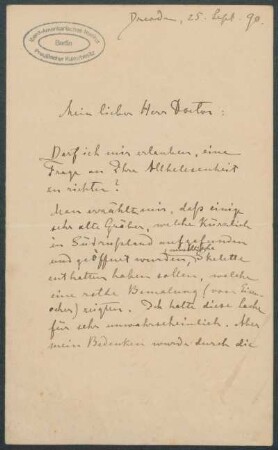 Ibero-Amerikanisches Institut
Berlin
Preußischer Kulturbesitz
Dresden, 25. Sept. 90.
Mein lieber Herr Doctor:
Darf ich mir erlauben, eine
Frage an Ihre Allbelesenheit
zu richten?
Man erzählte mir, daß einige
sehr alte Gräber, welche kürzlich
in Südrußland aufgefunden
und geöffnet wurden, Skelette
enthalten haben sollen, welche
eine rothe Bemalung (von
zeigten. Ich halte diese Sache
für sehr unwahrscheinlich. Aber
mein Bedenken wurde durch die